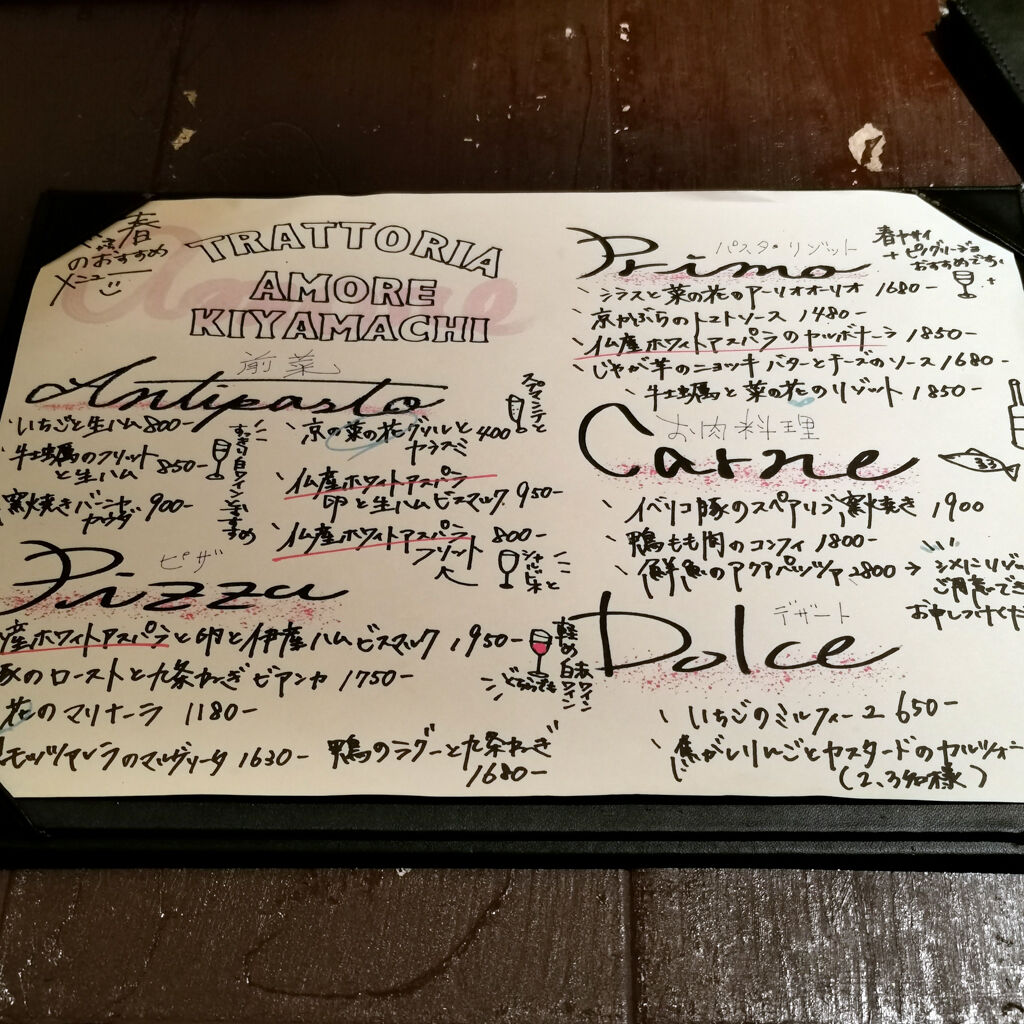 春
のおすすめ
メニュー
TRATTORIA
AMORE
KIYAMACHI
前菜
Antipasto
いちごと生ハム 800-
牛土蠣のフリット
と生ハム 850-
窯焼きバーニャ
カウダ 900-
すっきり白ワインおすすめ
京の菜の花グリルと
カラスミ 400
スプマンテと
仏産ホワイトアスパラ
卵と生ハムビスマルク 950-
仏産ホワイトアスパラ 800-
フリット
ピザ
Pizza
産ホワイトアスパラと卵と伊産ハムビスマルク 1950-
豚のローストと九条ねぎビアンカ 1750-
花のマリナーラ 1180-
モッツアレラのマルゲリータ 1630-
鴨のラグーと九条ねぎ
1680-
軽め赤ワイン
白ワイン
どちらでも
Primo
パスタ・リゾット
春ヤサイ
+ピノグリージョ
おすすめです。
シラスと菜の花のアーリオオーリオ 1680-
京かぶらのトマトソース 1480-
仏産ホワイトアスパラのカルボナーラ 1850-
じゃが芋のニョッキ バターとチーズのソース 1680-
牛土蠣と菜の花のリゾット 1850-
お肉料理
Carne
イベリコ豚のスペアリブ窯焼き 1900
鴨もも肉のコンフィ 1800-
鮮魚のアクアパッツァ 2800 → シメにリゾ
ご用意でき
お申しつけくだ
デザート
Dolce
いちごのミルフィーユ 650-
焦がしりんごとカスタードのカルツォー
(2、3名様)